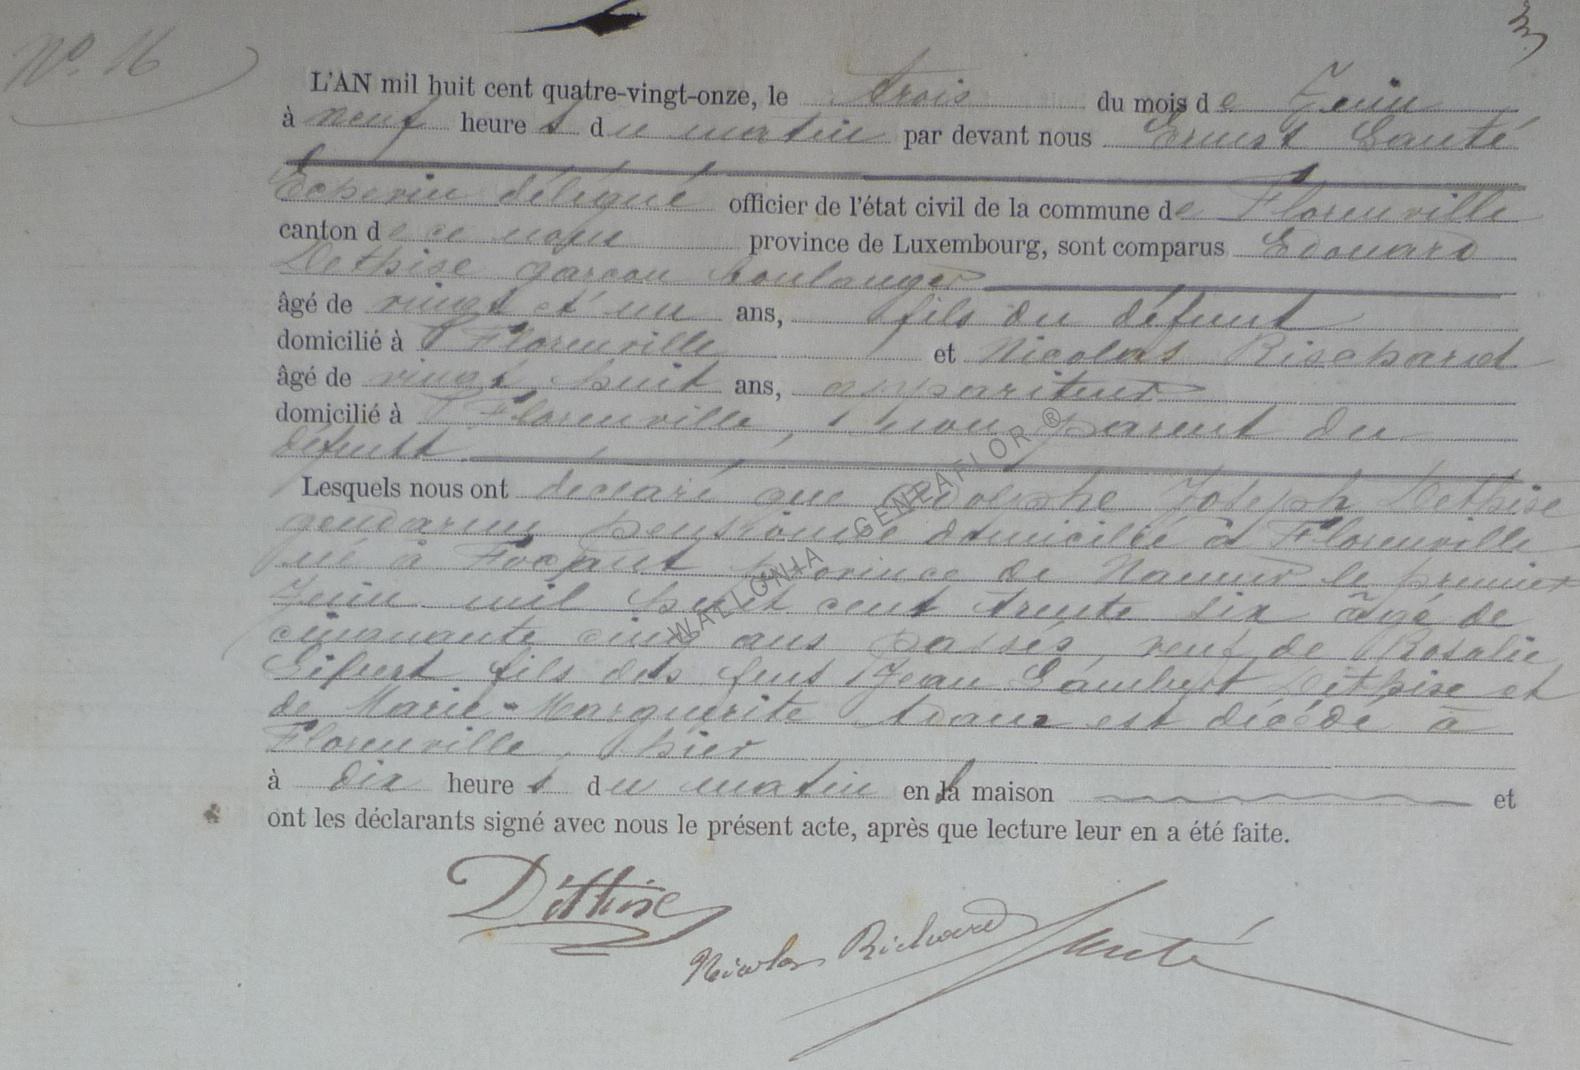 3
N°. 16
L'AN mil huit cent quatre-vingt-onze, le trois du mois de Juin
à neuf heures du matin par devant nous Ernest Santé
Echevin délégué officier de l'état civil de la commune de Florenville
canton de ce nom province de Luxembourg, sont comparus Edouard
Dethise garçon boulanger
âgé de vingt et un ans, fils du défunt
domicilié à Florenville et Nicolas Rischard
âgé de vingt huit ans, appariteur
domicilié à Florenville, non parent du
défunt
Lesquels nous ont déclaré que Adolphe Joseph Dethise
gendarme pensionné domicilié à Florenville
né à Focant province de Namur le premier
Juin mil huit cent trente six âgé de
cinquante cinq ans passés, veuf de Rosalie
fils des feus Jean Lambert Dethise et
de Marie-Marguerite Adam est décédé à
Florenville, hier
à dix heures du matin en sa maison et
ont les déclarants signé avec nous le présent acte, après que lecture leur en a été faite.
Déthise
Nicolas Richard Santé
WALLONIA GENEAFLOR ®